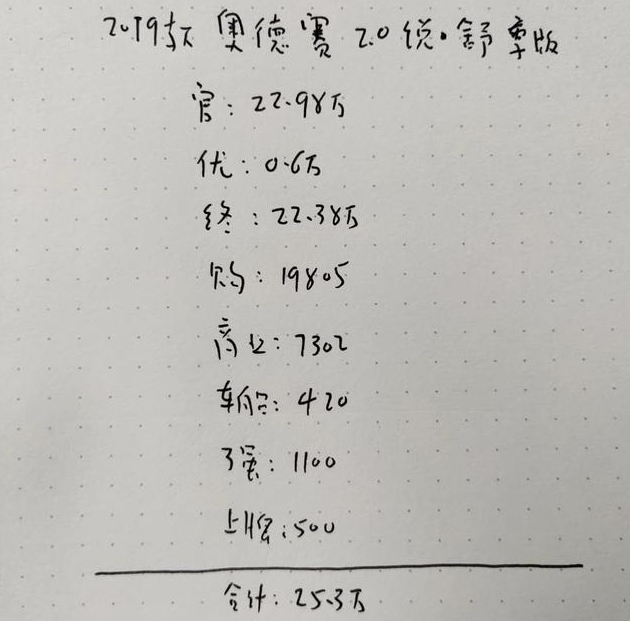 2019款 奥德赛 2.0 锐·舒享版
官: 22.98万
优: 0.6万
终: 22.38万
购: 19805
商业: 7302
车船: 420
强: 1100
上牌: 500
合计: 25.3万